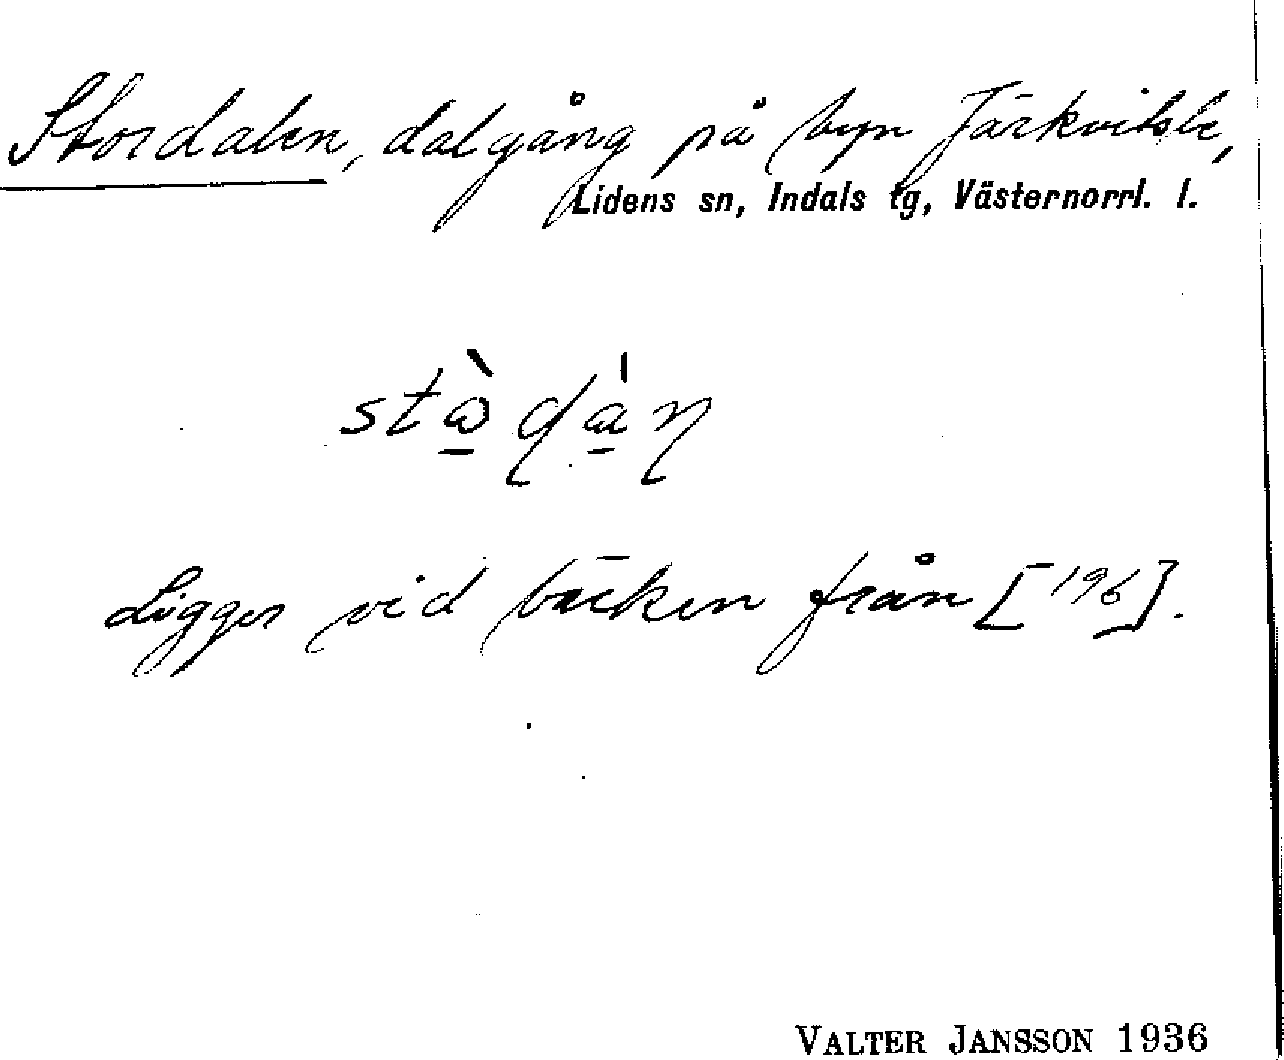 Stordalen, dalgång på byn Järkvitsle,
Lidens sn, Indals tg, Västernorrl. l.
Ligger vid bäcken från [196].
VALTER JANSSON 1936